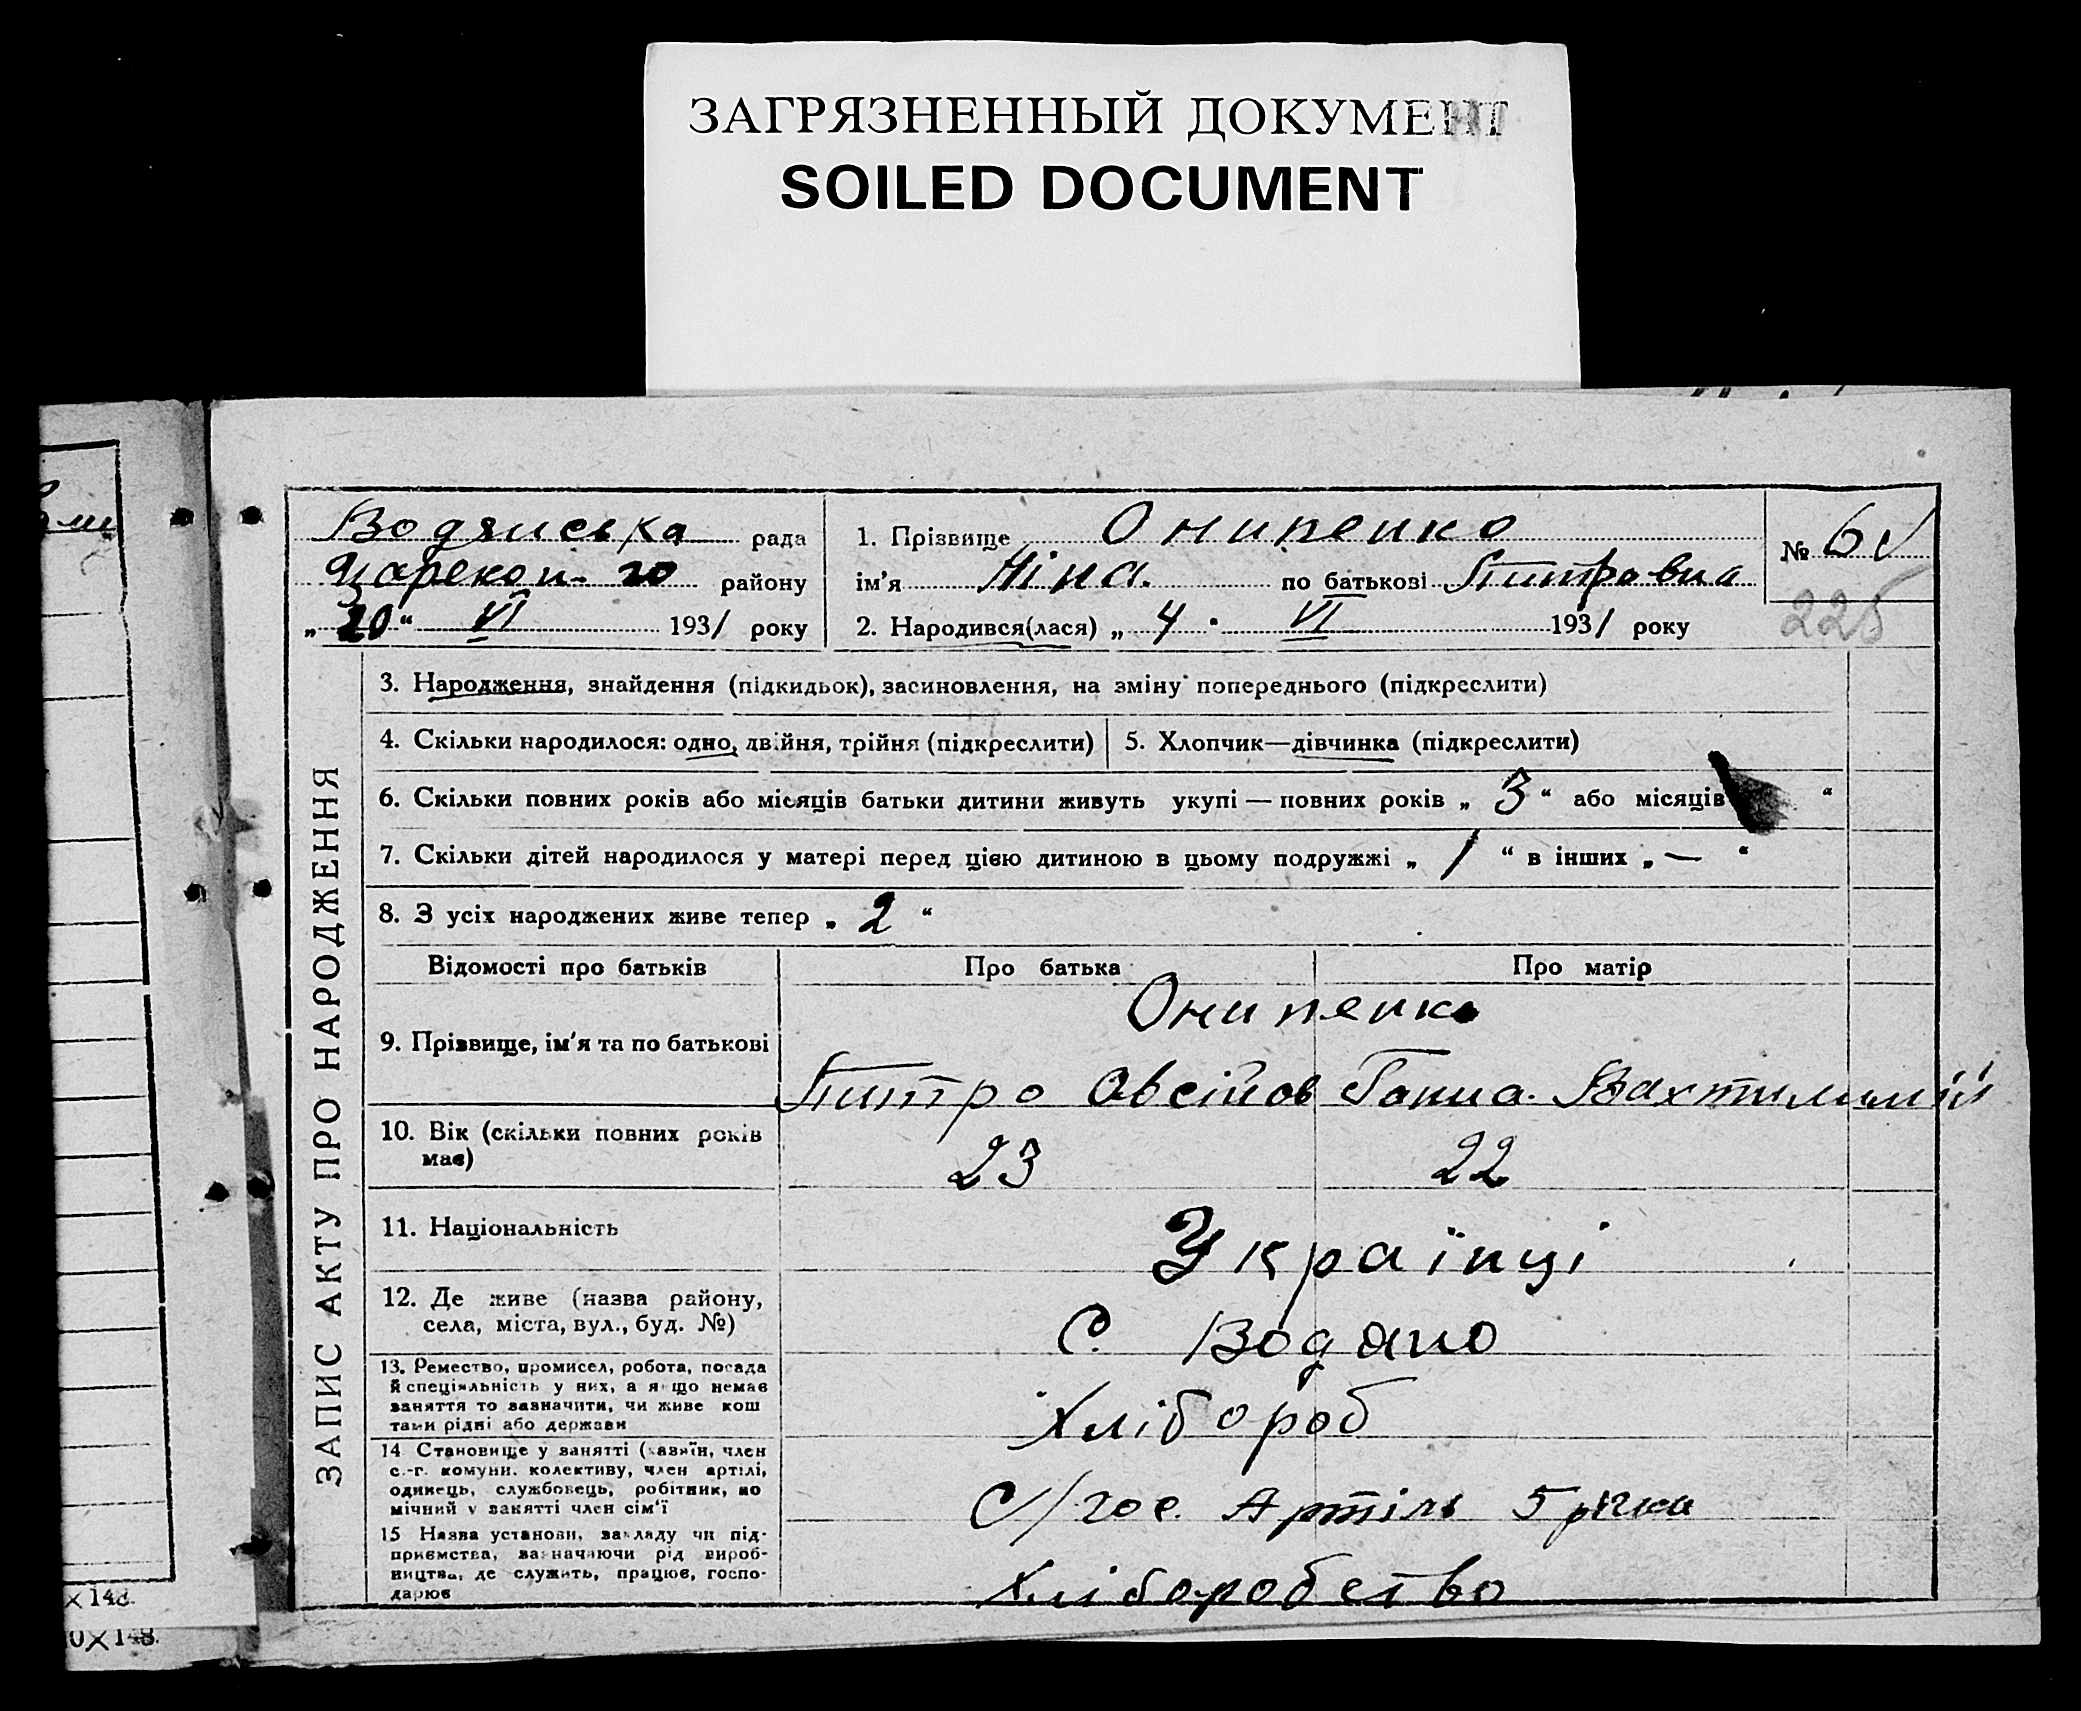 ЗАГРЯЗНЕННЫЙ ДОКУМЕНТ
SOILED DOCUMENT
Водянська рада
го району
„20“ VI 1931 року
1. Прізвище Онипенко
ім'я Ніна. по батькові Питровна
2. Народився(лася) „4“ VI 1931 року
№ 60
225
ЗАПИС АКТУ ПРО НАРОДЖЕННЯ
3. Народження, знайдення (підкидьок), засиновлення, на зміну попереднього (підкреслити)
4. Скільки народилося: одно, двійня, трійня (підкреслити)
5. Хлопчик—дівчинка (підкреслити)
6. Скільки повних років або місяців батьки дитини живуть укупі — повних років „3“ або місяців “
7. Скільки дітей народилося у матері перед цією дитиною в цьому подружжі „1“ в інших „—“
8. З усіх народжених живе тепер „2“
Відомості про батьків
Про батька
Про матір
9. Прізвище, ім'я та по батькові
Онипенко
Питро Овсійов Ганна.
10. Вік (скільки повних років
має)
23
22
11. Національність
Українці
12. Де живе (назва району,
села, міста, вул., буд. №)
С. Водяно
13. Ремество, промисел, робота, посада
й спеціяльність у них, а якщо немає
заняття то зазначити, чи живе кош
тами рідні або держави
Хлібороб
14 Становище у занятті (хазяїн, член
с.-г. комуни, колективу, член артілі,
одинець, службовець, робітник, по
мічний у занятті член сім'ї
С/гос. Артіль 5 річка
15 Назва установи, закладу чи під-
приємства, зазначаючи рід вироб-
ництва, де служить, працює, госпо-
дарює
Хліборобство
× 148.
0×148.